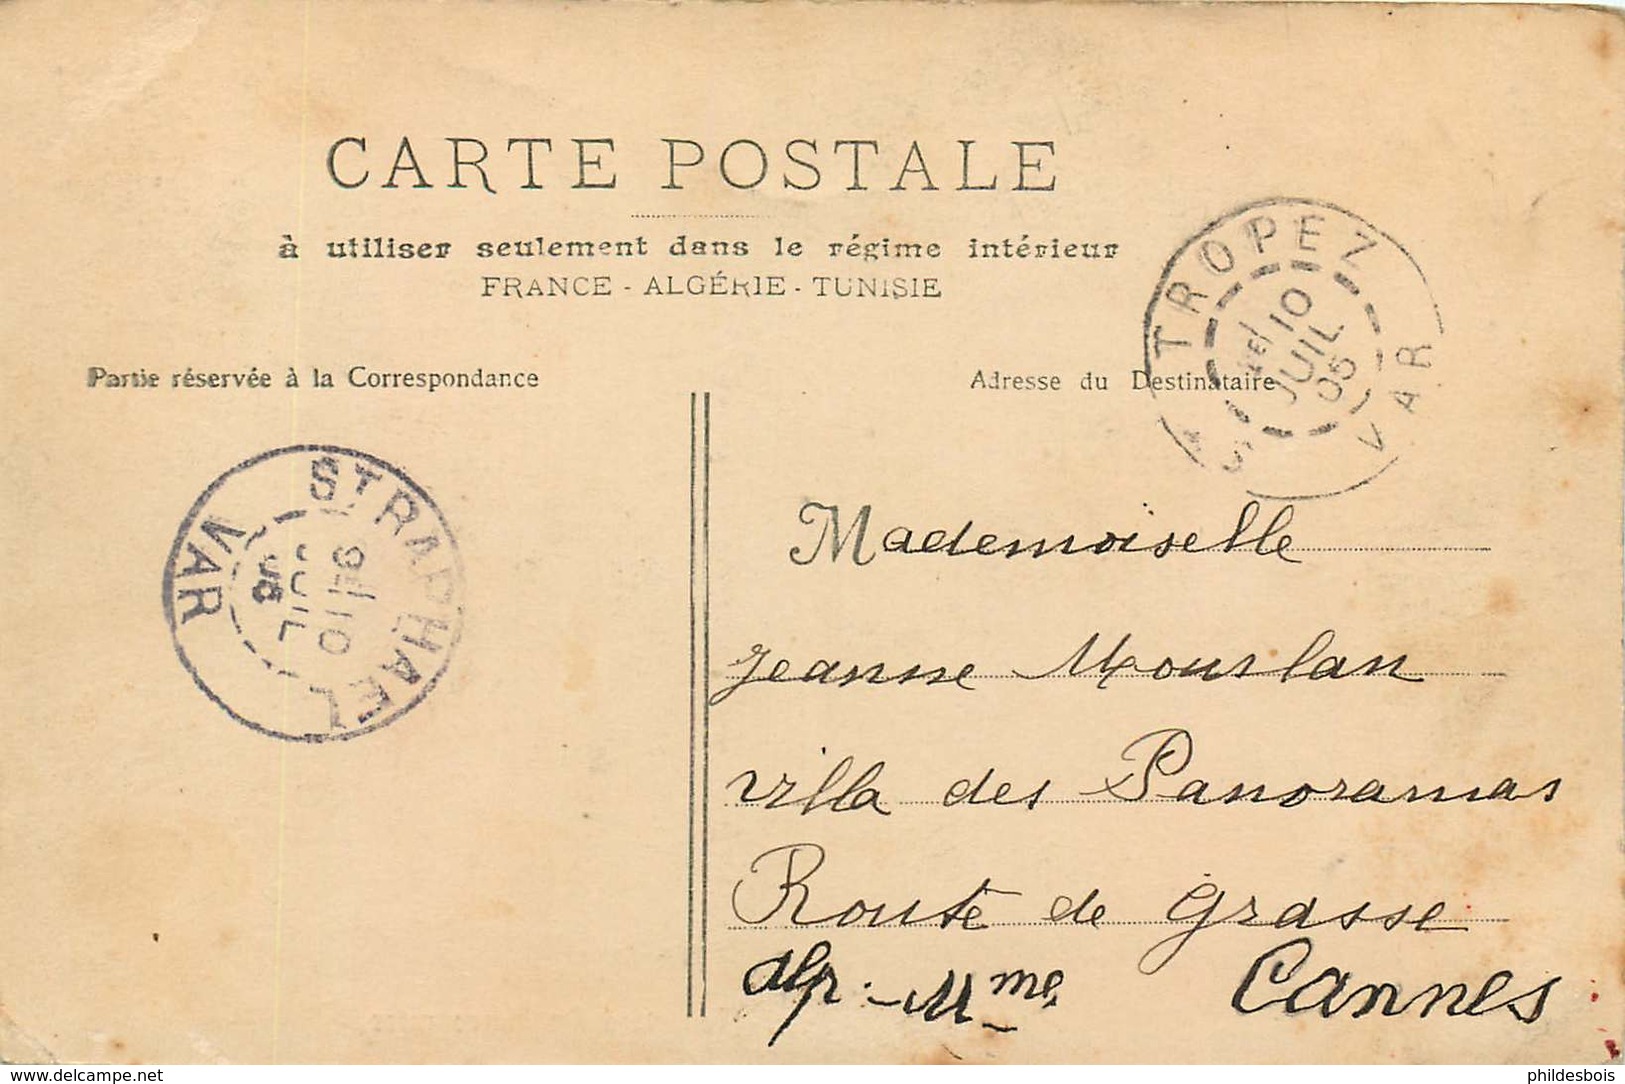 CARTE POSTALE
à utiliser seulement dans le régime intérieur
FRANCE - ALGÉRIE - TUNISIE
Partie réservée à la Correspondance
Adresse du Destinataire
ST TROPEZ
10
JUIL
05
VAR
ST RAPHAEL
VAR
10
JUIL
Mademoiselle
Jeanne Mourlan
villa des Panoramas
Route de Grasse
Alp.-Mmes
Cannes
www.delcampe.net
phildesbois